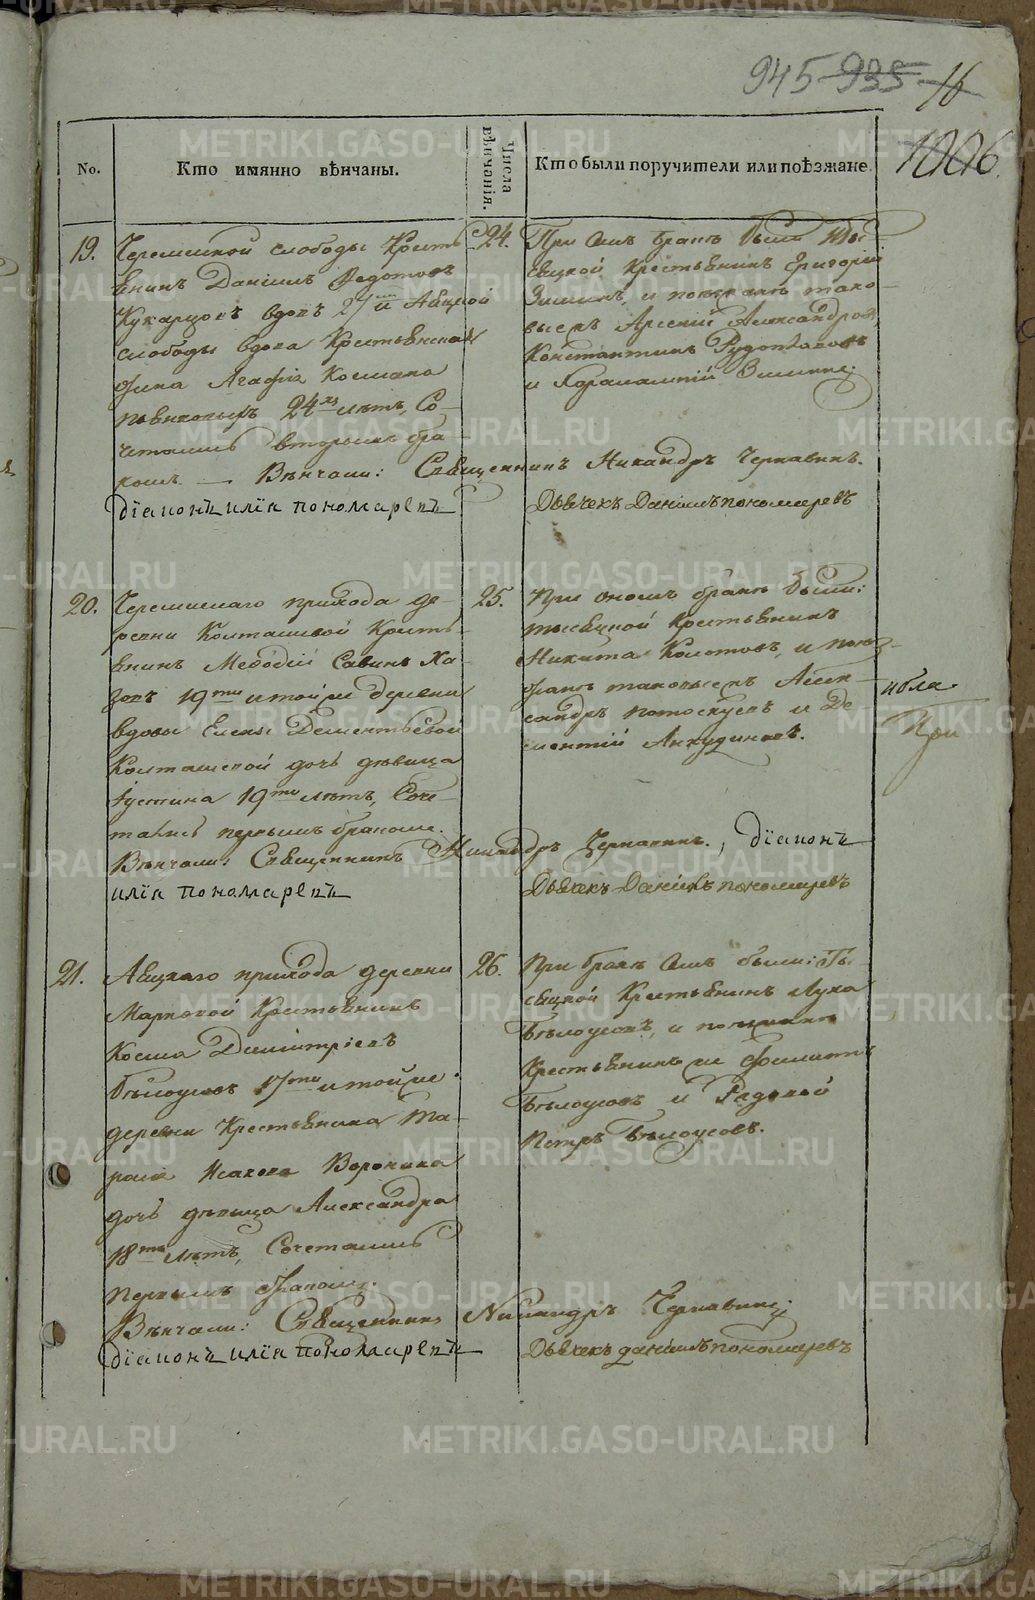 945 935 16
1006.
No.
Кто имянно вѣнчаны.
Числа вѣнчанія.
Кто были поручители или поѣзжане.
19.
Черемиской слободы Кресть
янинъ Даніилъ Ѳедотовъ
вдовъ 27
слободы вдова Крестьянская
Агафія Космина
24хъ лѣтъ, Со-
четались вторымъ бра
комъ. — Вѣнчали: Священникъ Никандръ Чернавинъ.
діаконъ илія пономаревъ
24.
При семъ бракѣ были Ты
сяцкой Крестьянинъ Григорій
Зиминъ, и поѣзжане тако-
выежъ Арсеній Александровъ,
Константинъ
и Харалампій Зимины.
Дьячекъ Даніилъ пономаревъ
20.
прихода де-
ревни Колташевой Кресть-
янинъ Меѳодій Савинъ Ха-
19ти и той же деревни
вдовы Елены Дементьевой
дочь дѣвица
Іустина 19ти лѣтъ, Соче-
тались первымъ бракомъ.
Вѣнчали: Священникъ Никандръ Чернавинъ., діаконъ
илія пономаревъ
25.
При ономъ бракѣ были:
тысяцкой Крестьянинъ
Никита Колотовъ, и поѣз-
жане таковыежъ Алек-
сандръ Потоскуевъ и Де
ментій Анкудиновъ.
Дьячекъ Даніилъ пономаревъ
ибля.
При
21.
Аяцкаго прихода деревни
Марковой Крестьянинъ
Косма Димитріевъ
Бѣлоусовъ 17ти и той же
деревни Крестьянина Та-
расія Исакова Воронина
дочь дѣвица Александра
18ти лѣтъ, Сочетались
первымъ бракомъ.
Вѣнчали: Священникъ Никандръ Чернавинъ;
діаконъ илія пономаревъ
26.
При бракѣ семъ были: Ты
сяцкой Крестьянинъ Лука
Бѣлоусовъ, и поѣзжане
Крестьянинъ же Филатъ
Бѣлоусовъ и Рядовой
Петръ Бѣлоусовъ.
Дьячекъ даніилъ пономаревъ
METRIKI.GASO-URAL.RU